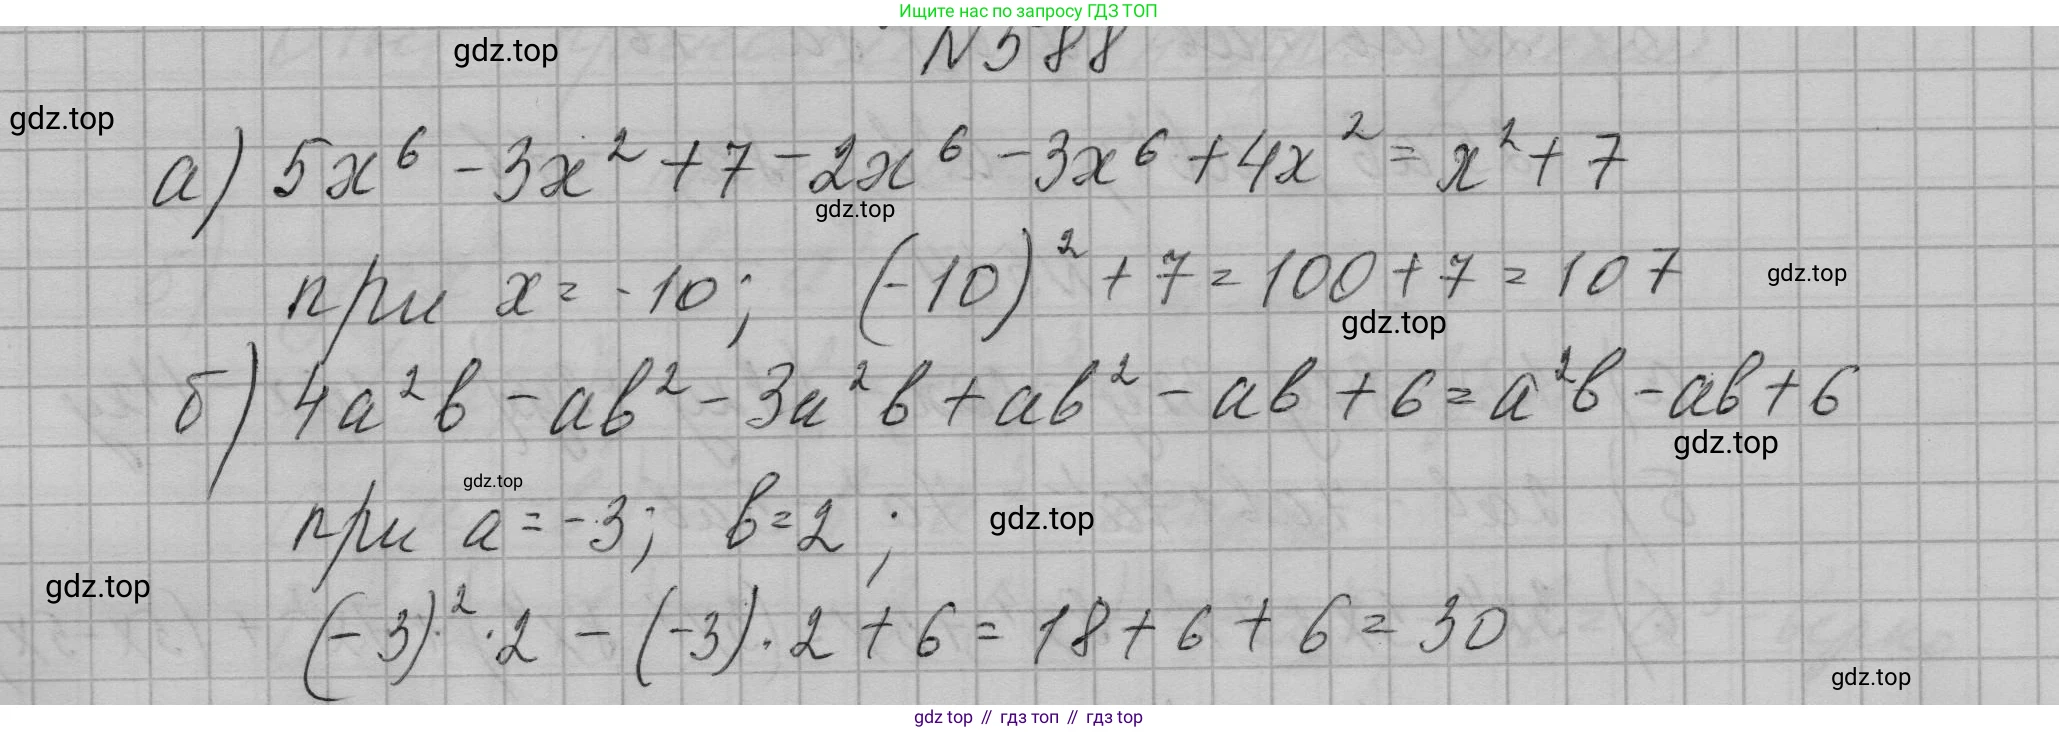 Ищите нас по запросу ГДЗ ТОП
№588
gdz.top
gdz.top
а) 5x⁶ - 3x² + 7 - 2x⁶ - 3x⁶ + 4x² = x² + 7
gdz.top
при x = -10; (-10)² + 7 = 100 + 7 = 107
gdz.top
gdz.top
б) 4a²b - ab² - 3a²b + ab² - ab + 6 = a²b - ab + 6
gdz.top
gdz.top
при a = -3; b = 2;
gdz.top
gdz.top
(-3)² · 2 - (-3) · 2 + 6 = 18 + 6 + 6 = 30
gdz.top
gdz top // гдз топ // гдз top